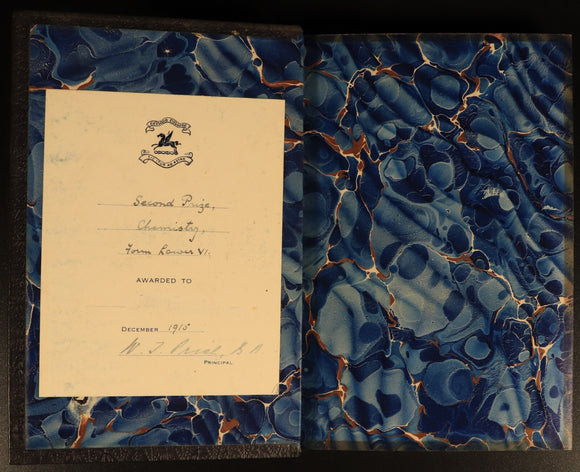 Second Prize,
Chemistry,
Form Lower VI.
AWARDED TO
DECEMBER 1915
W. J.
PRINCIPAL